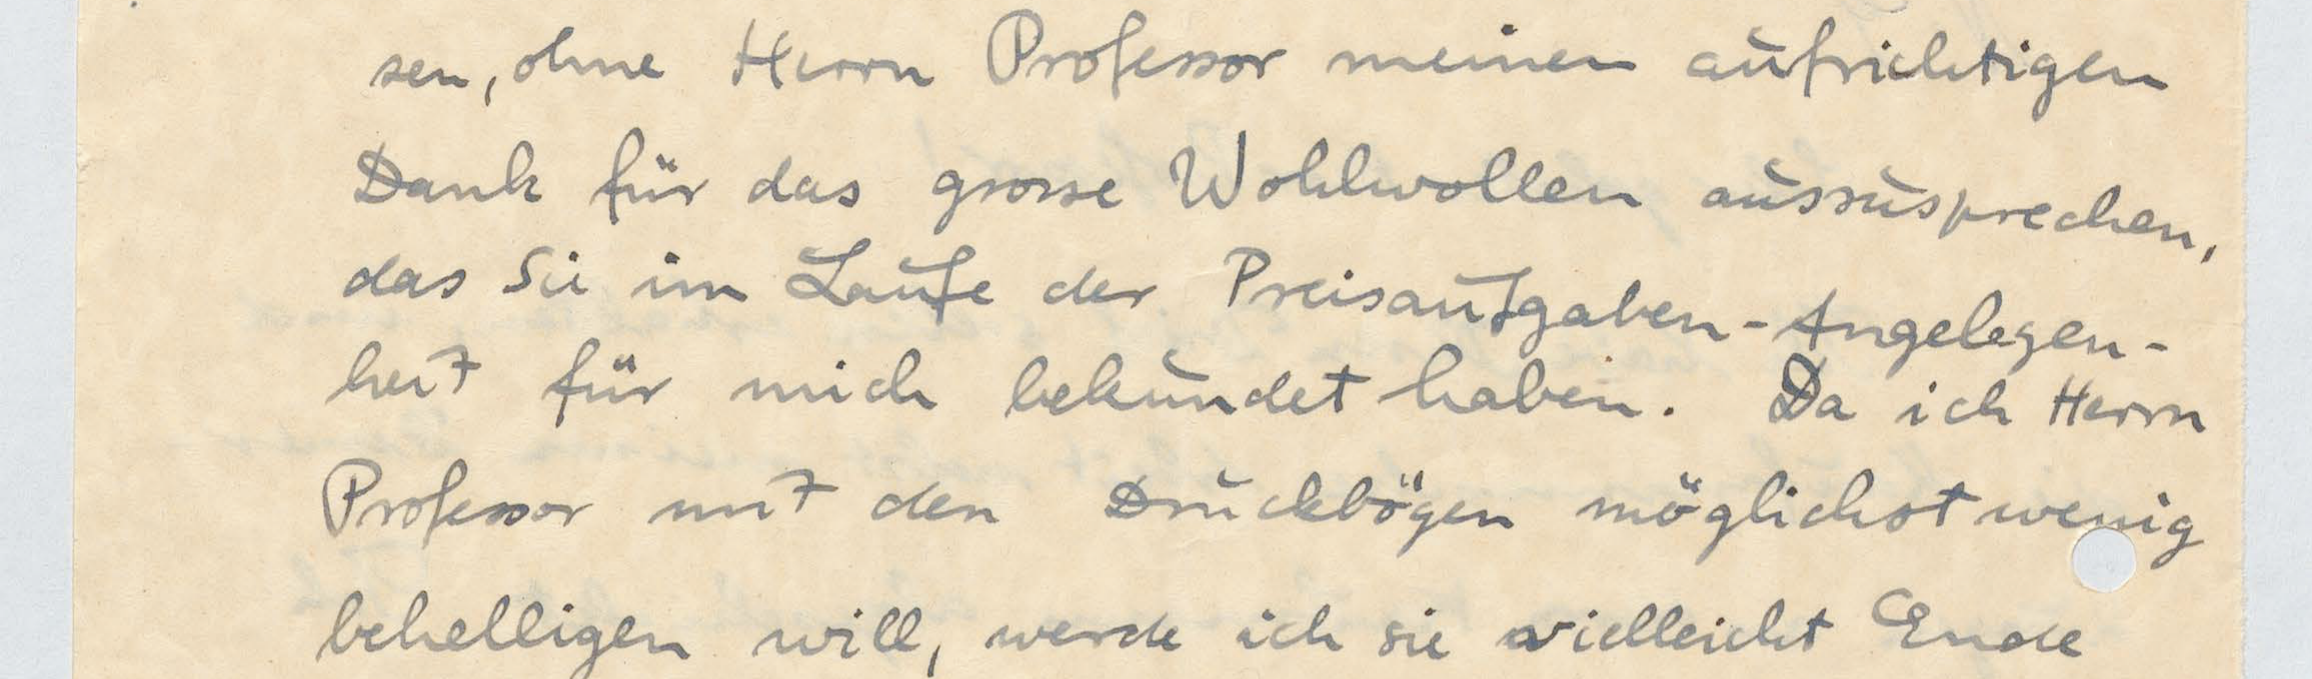 sen, ohne Herrn Professor meinen aufrichtigen
Dank für das grosse Wohlwollen auszusprechen,
das Sie im Laufe der Preisaufgaben-Angelegen-
heit für mich bekundet haben. Da ich Herrn
Professor mit den Druckbögen möglichst wenig
behelligen will, werde ich sie vielleicht Ende